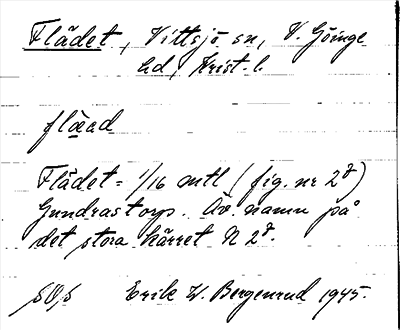 Flädet, Vittsjö sn, V. Göinge
hd, Krist. l.
fläad
Flädet = 1/16 mtl (fig. nr 2d)
Gundrastorp. Äv. namn på
det stora kärret N 2d.
SOS Erik W. Bergenrud 1945.